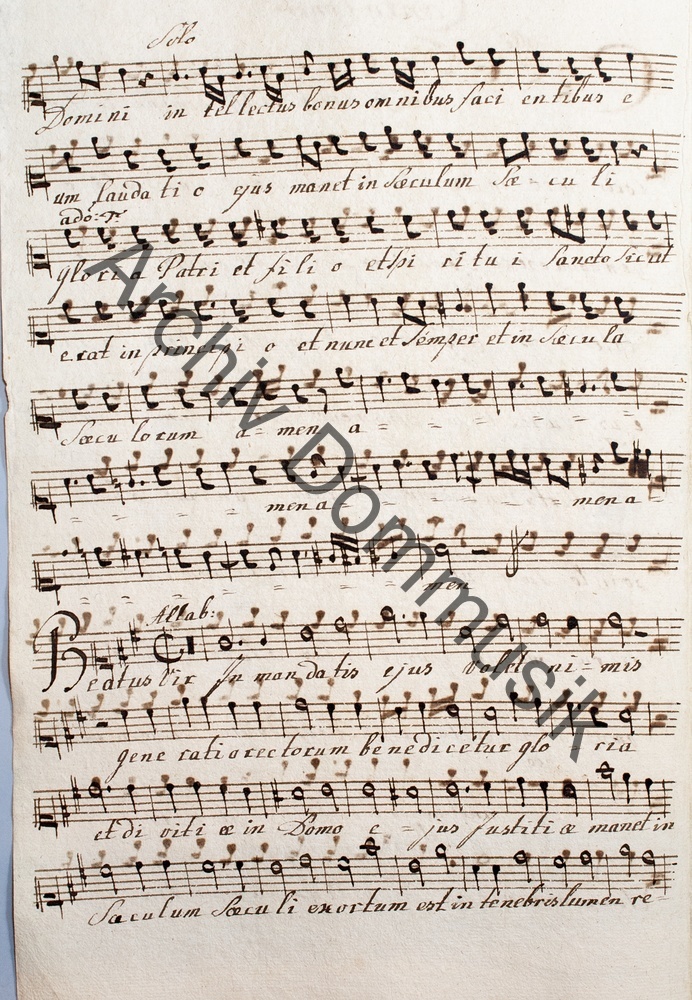 Solo
Domini in tellectus bonus omnibus faci entibus e
um lauda ti o ejus manet in sæculum Sæ = cu li
ado:
Gloria Patri et fi li o et spi ri tu i Sancto Sicut
erat in principi o et nunc et semper et in sæcu la
Sæcu lorum a = men a = = = = = =
= = = = mena = = = = mena =
= = = = = = = = = men
Allab:
Beatus Vir In man da tis ejus volet ni = mis
gene ratio rectorum benedicetur glo = ria
et di viti æ in Domo e = jus Justiti æ manet in
Saculum Sæcu li exortum est in tenebris lumen re=
Archiv Dommusik